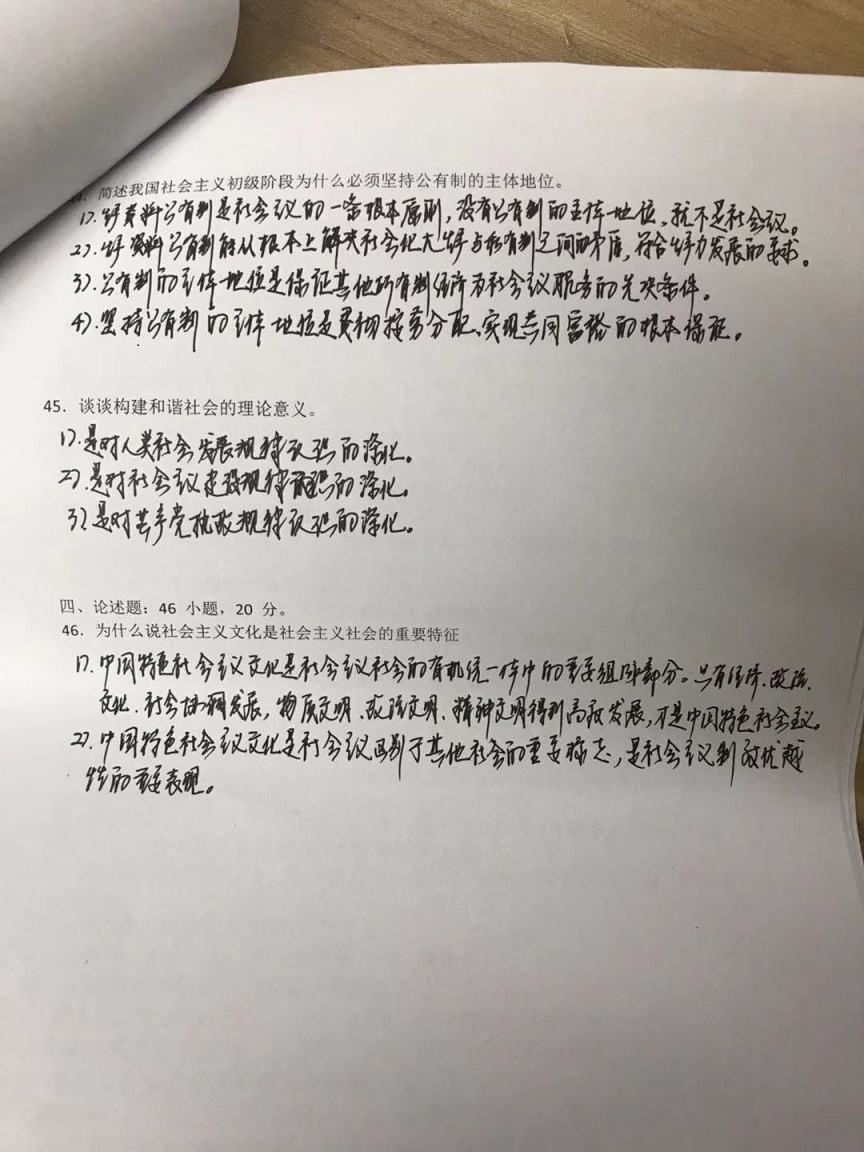 44. 简述我国社会主义初级阶段为什么必须坚持公有制的主体地位。
1).生产资料公有制是社会主义的一条根本原则,没有公有制的主体地位,就不是社会主义。
2).生产资料公有制能从根本上解决社会化大生产与私有制之间的矛盾,符合生产力发展的要求。
3).公有制的主体地位是保证其他所有制经济为社会主义服务的先决条件。
4).坚持公有制的主体地位是贯彻按劳分配、实现共同富裕的根本保证。
45. 谈谈构建和谐社会的理论意义。
1).是对人类社会发展规律认识的深化。
2).是对社会主义建设规律认识的深化。
3).是对共产党执政规律认识的深化。
四、论述题:46 小题,20 分。
46. 为什么说社会主义文化是社会主义社会的重要特征
1).中国特色社会主义文化是社会主义社会的有机统一体中的重要组成部分。只有经济、政治、
文化、社会协调发展,物质文明、政治文明、精神文明得到高度发展,才是中国特色社会主义。
2).中国特色社会主义文化是社会主义区别于其他社会的重要标志,是社会主义制度优越
性的重要表现。